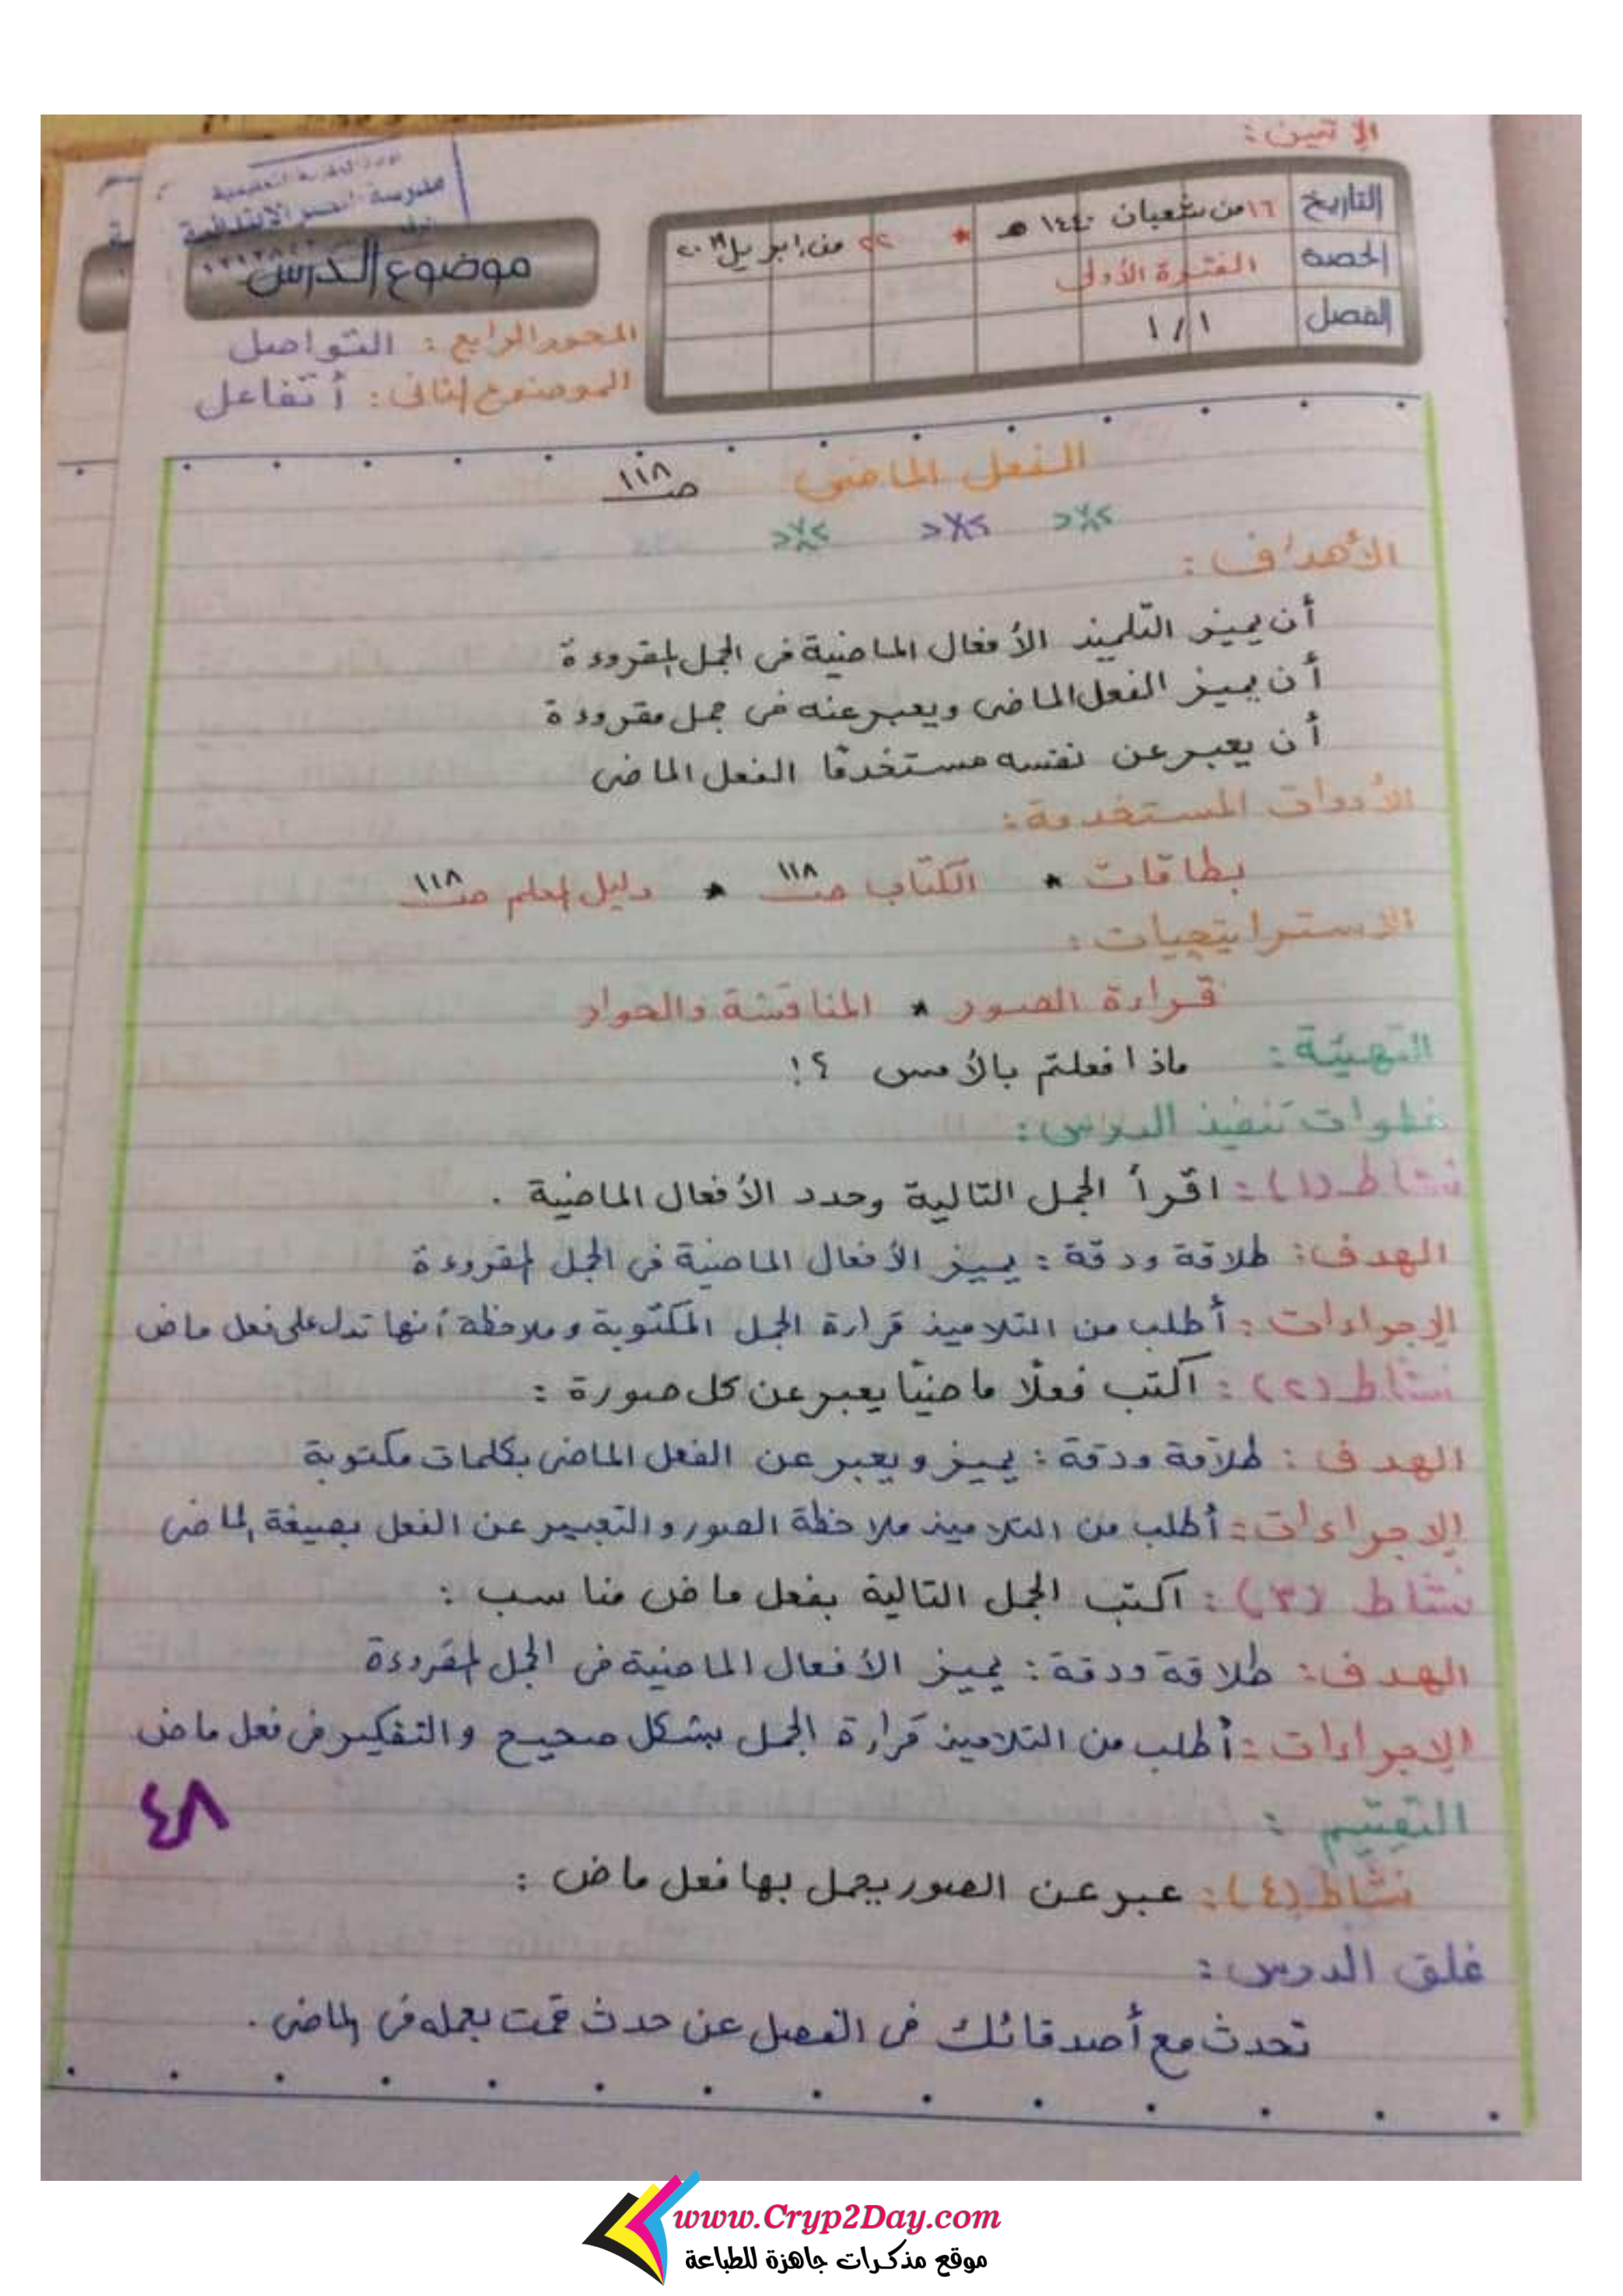 الإثنين:
التاريخ ١٦ من شعبان ١٤٤٠ هـ * ٢٢ من إبريل ٢٠١٩
الحصة الفترة الأولى
الفصل ١/١
مدرسة الابتدائية
موضوع الدرس
المحور الرابع : التواصل
الموضوع الثاني : أتفاعل
الفعل الماضى صـ ١١٨
الأهداف :
أن يميز التلميذ الأفعال الماضية فى الجمل المقروءة
أن يميز الفعل الماضى ويعبر عنه فى جمل مقروءة
أن يعبر عن نفسه مستخدمًا الفعل الماضى
الأدوات المستخدمة :
بطاقات * الكتاب صـ ١١٨ * دليل المعلم صـ ١١٨
الاستراتيجيات :
قراءة الصور * المناقشة والحوار
التهيئة : ماذا فعلتم بالأمس ؟!
خطوات تنفيذ الدرس :
نشاط (١) : اقرأ الجمل التالية وحدد الأفعال الماضية .
الهدف : طلاقة ودقة : يميز الأفعال الماضية فى الجمل المقروءة
الإجراءات : أطلب من التلاميذ قراءة الجمل المكتوبة وملاحظة أنها تدل على فعل ماض
نشاط (٢) : اكتب فعلًا ماضيًا يعبر عن كل صورة :
الهدف : طلاقة ودقة : يميز ويعبر عن الفعل الماضى بكلمات مكتوبة
الإجراءات : أطلب من التلاميذ ملاحظة الصور والتعبير عن الفعل بصيغة الماضى
نشاط (٣) : اكتب الجمل التالية بفعل ماض مناسب :
الهدف : طلاقة ودقة : يميز الأفعال الماضية فى الجمل المقروءة
الإجراءات : أطلب من التلاميذ قراءة الجمل بشكل صحيح والتفكير فى فعل ماض
التقييم :
٤٨
نشاط (٤) : عبر عن الصور بجمل بها فعل ماض :
غلق الدرس :
تحدث مع أصدقائك فى الفصل عن حدث قمت بعمله فى الماضى .
www.Cryp2Day.com
موقع مذكرات جاهزة للطباعة